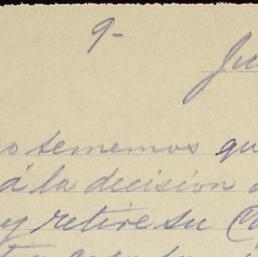 9-
Ju
no tememos qu
á la decisión
y retire su Ca